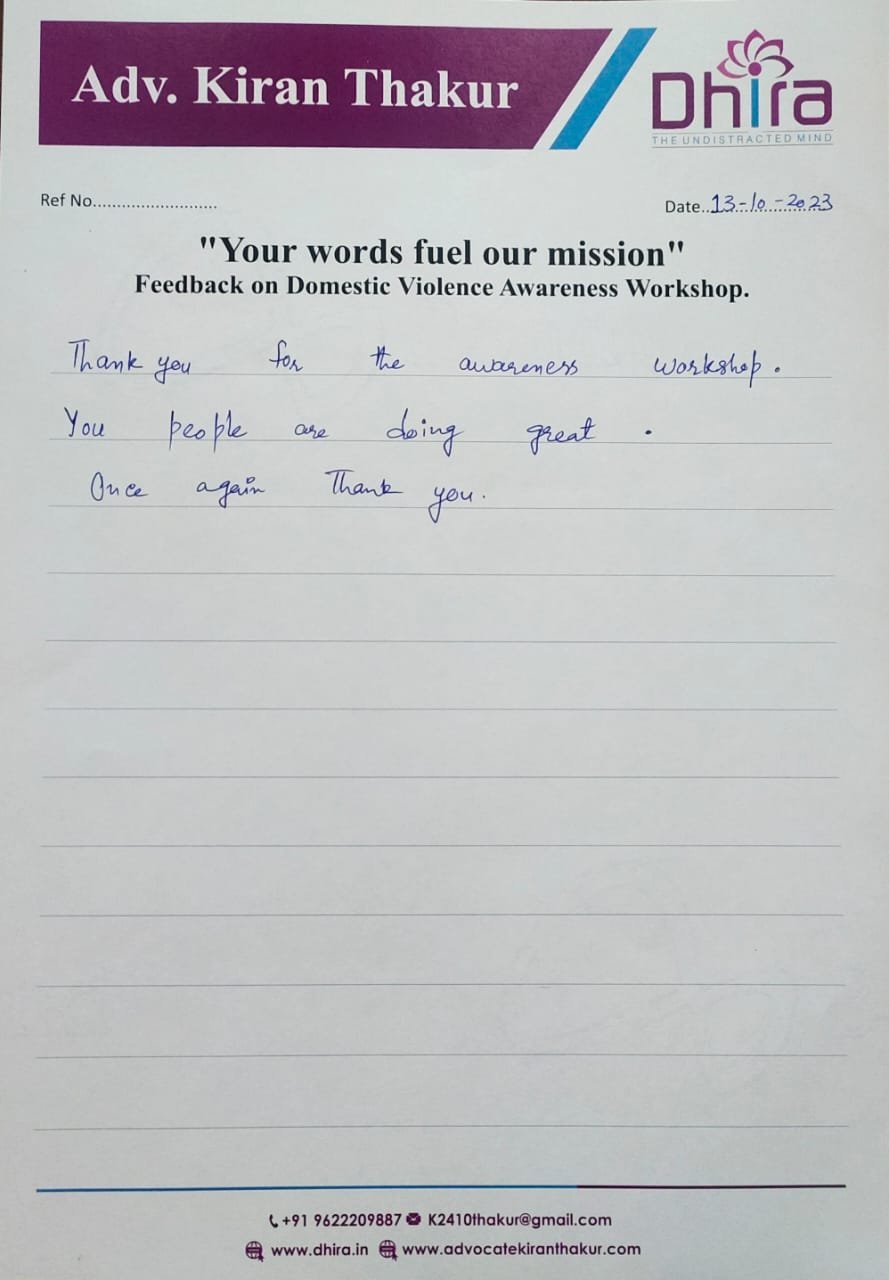 Adv. Kiran Thakur
Dhira
THE UNDISTRACTED MIND
Ref No...........................
Date..13-10-2023
"Your words fuel our mission"
Feedback on Domestic Violence Awareness Workshop.
Thank you for the awareness workshop.
You people are doing great.
Once again Thank you.
+91 9622209887 K2410thakur@gmail.com
www.dhira.in www.advocatekiranthakur.com